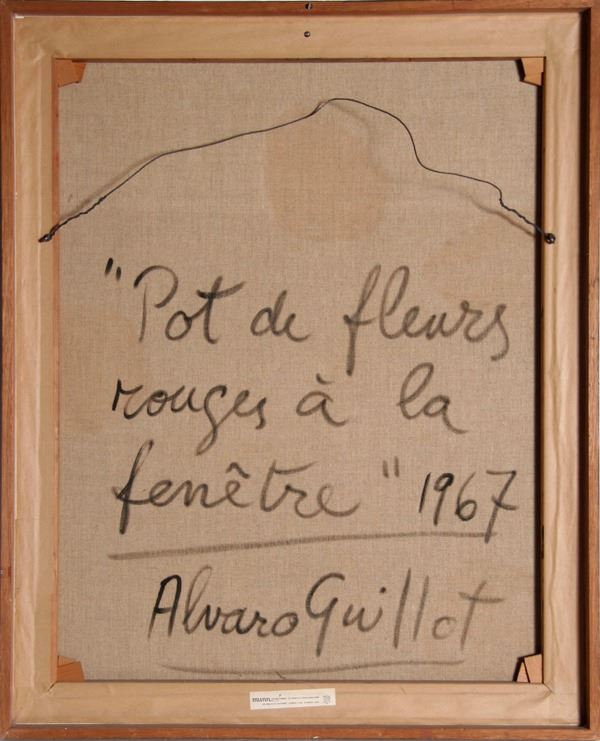 "Pot de fleurs
rouges à la
fenêtre" 1967
Alvaro Guillot